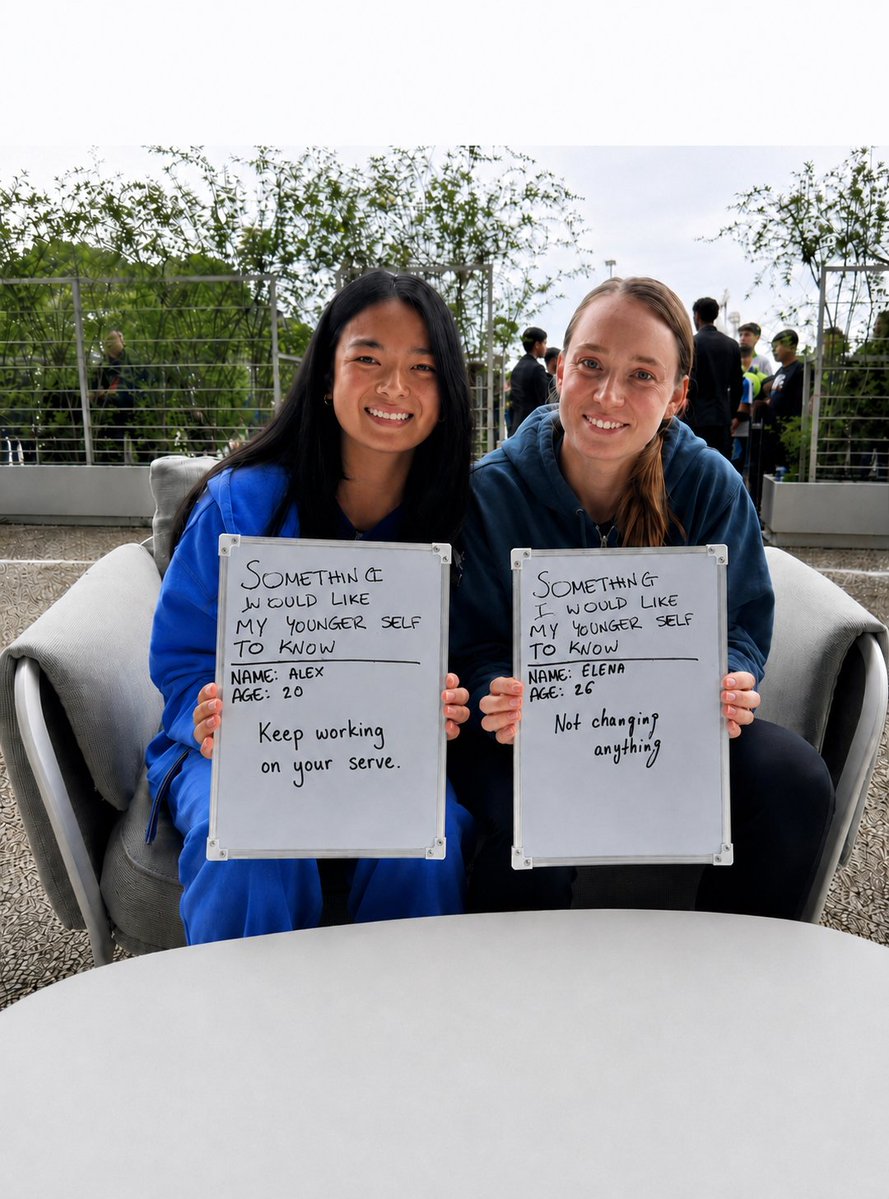 SOMETHING
I WOULD LIKE
MY YOUNGER SELF
TO KNOW
NAME: ALEX
AGE: 20
Keep working
on your serve.
SOMETHING
I WOULD LIKE
MY YOUNGER SELF
TO KNOW
NAME: ELENA
AGE: 26
Not changing
anything